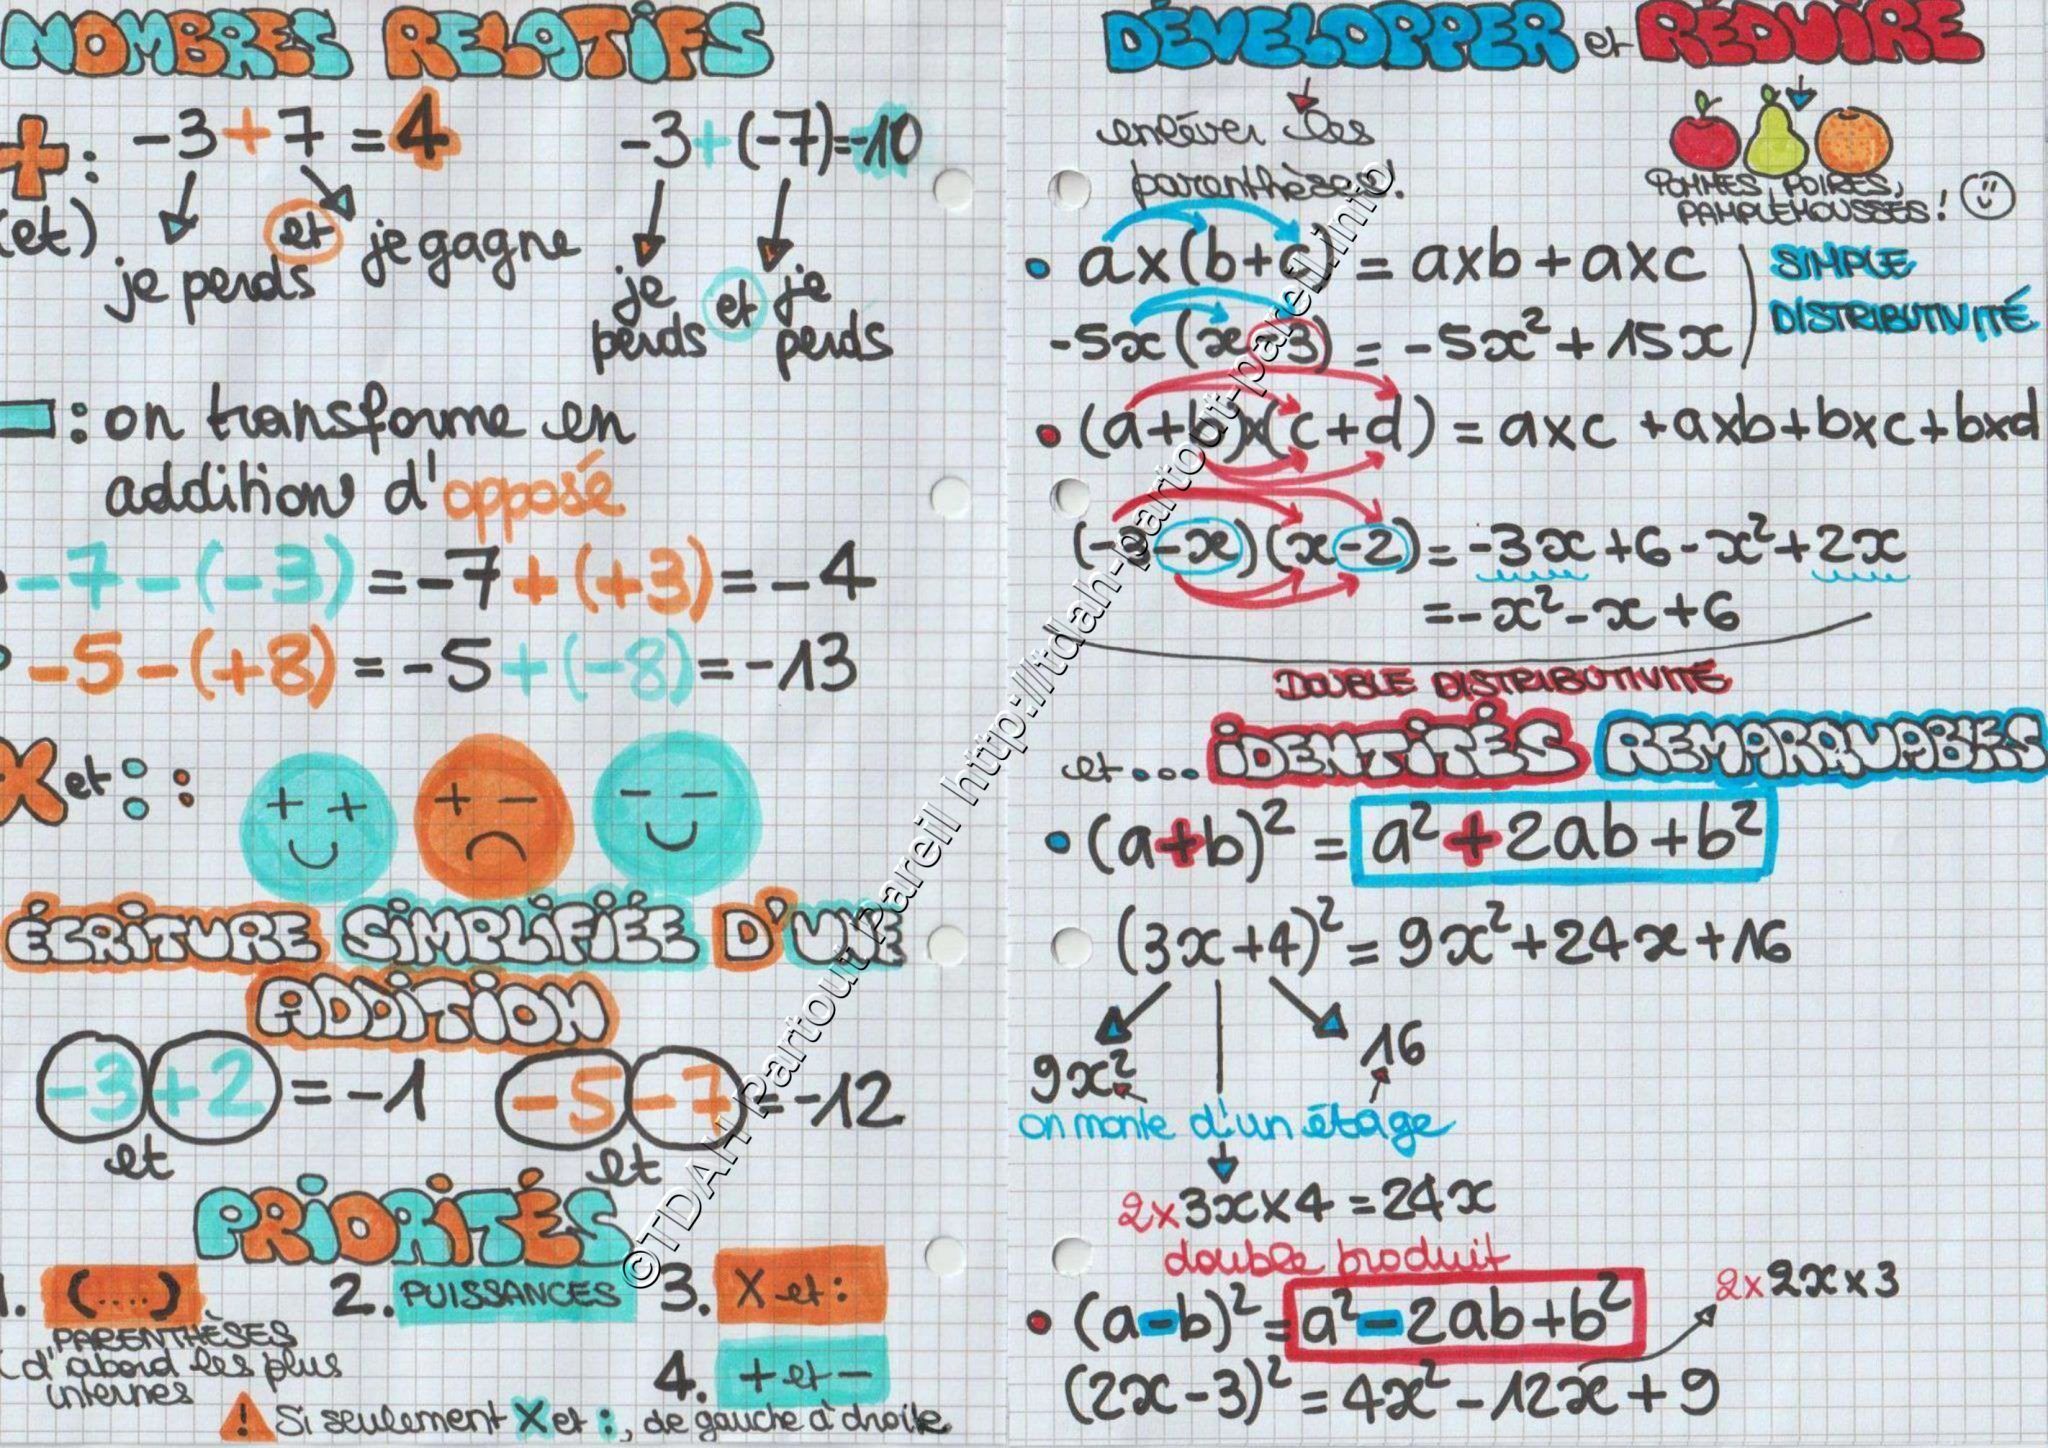 NOMBRES RELATIFS
+ : -3 + 7 = 4
-3 + (-7) = -10
(et)
je perds et je gagne
je perds et je perds
- : on transforme en
addition d'opposé
-7 - (-3) = -7 + (+3) = -4
-5 - (+8) = -5 + (-8) = -13
X et : :
+ +
+ -
- -
ÉCRITURE SIMPLIFIÉE D'UNE
ADDITION
-3 +2 = -1
et
-5 -7 = -12
et
PRIORITÉS
1. (....)
PARENTHÈSES
(d'abord les plus
internes
2. PUISSANCES
3. X et :
4. + et -
! Si seulement X et :, de gauche à droite
DÉVELOPPER et RÉDUIRE
enléver les
parenthèses.
POMMES, POIRES,
PAMPLEMOUSSES !
• a x (b + c) = a x b + a x c
-5x (x - 3) = -5x² + 15x
SIMPLE
DISTRIBUTIVITÉ
• (a + b) x (c + d) = a x c + a x b + b x c + b x d
(-3 - x) (x - 2) = -3x + 6 - x² + 2x
= -x² - x + 6
DOUBLE DISTRIBUTIVITÉ
et... IDENTITÉS REMARQUABLES
• (a + b)² = a² + 2ab + b²
(3x + 4)² = 9x² + 24x + 16
9x²
16
on monte d'un étage
2 x 3x x 4 = 24x
double produit
• (a - b)² = a² - 2ab + b²
2 x 2x x 3
(2x - 3)² = 4x² - 12x + 9
©TDAH Partout Pareil http://tdah-partout-pareil.info